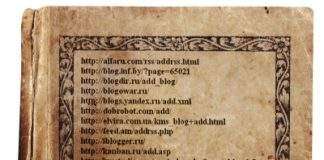 http://alfaru.com/rss/addrss.html
http://blog.inf.by/?page=65021
http://blogdir.ru/add_blog
http://blogowar.ru/
http://blogs.yandex.ru/add.xml
http://dobrobot.com/add
http://elvira.com.ua/kms_blog+add.html
http://feed.am/addrss.php
http://iblogger.ru/
http://kanban.ru/add.asp